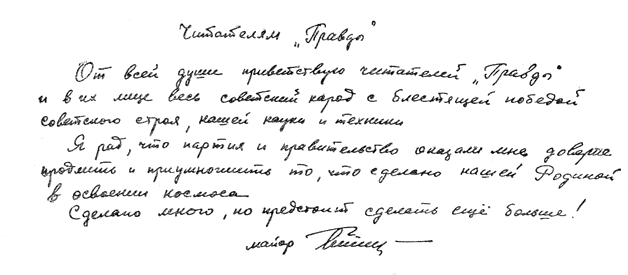 Читателям „Правды"
От всей души приветствую читателей „Правды"
и в их лице весь советский народ с блестящей победой
советского строя, нашей науки и техники
Я рад, что партия и правительство оказали мне доверие
продлить и приумножить то, что сделано нашей Родиной
в освоении космоса
Сделано много, но предстоит сделать ещё больше!
майор